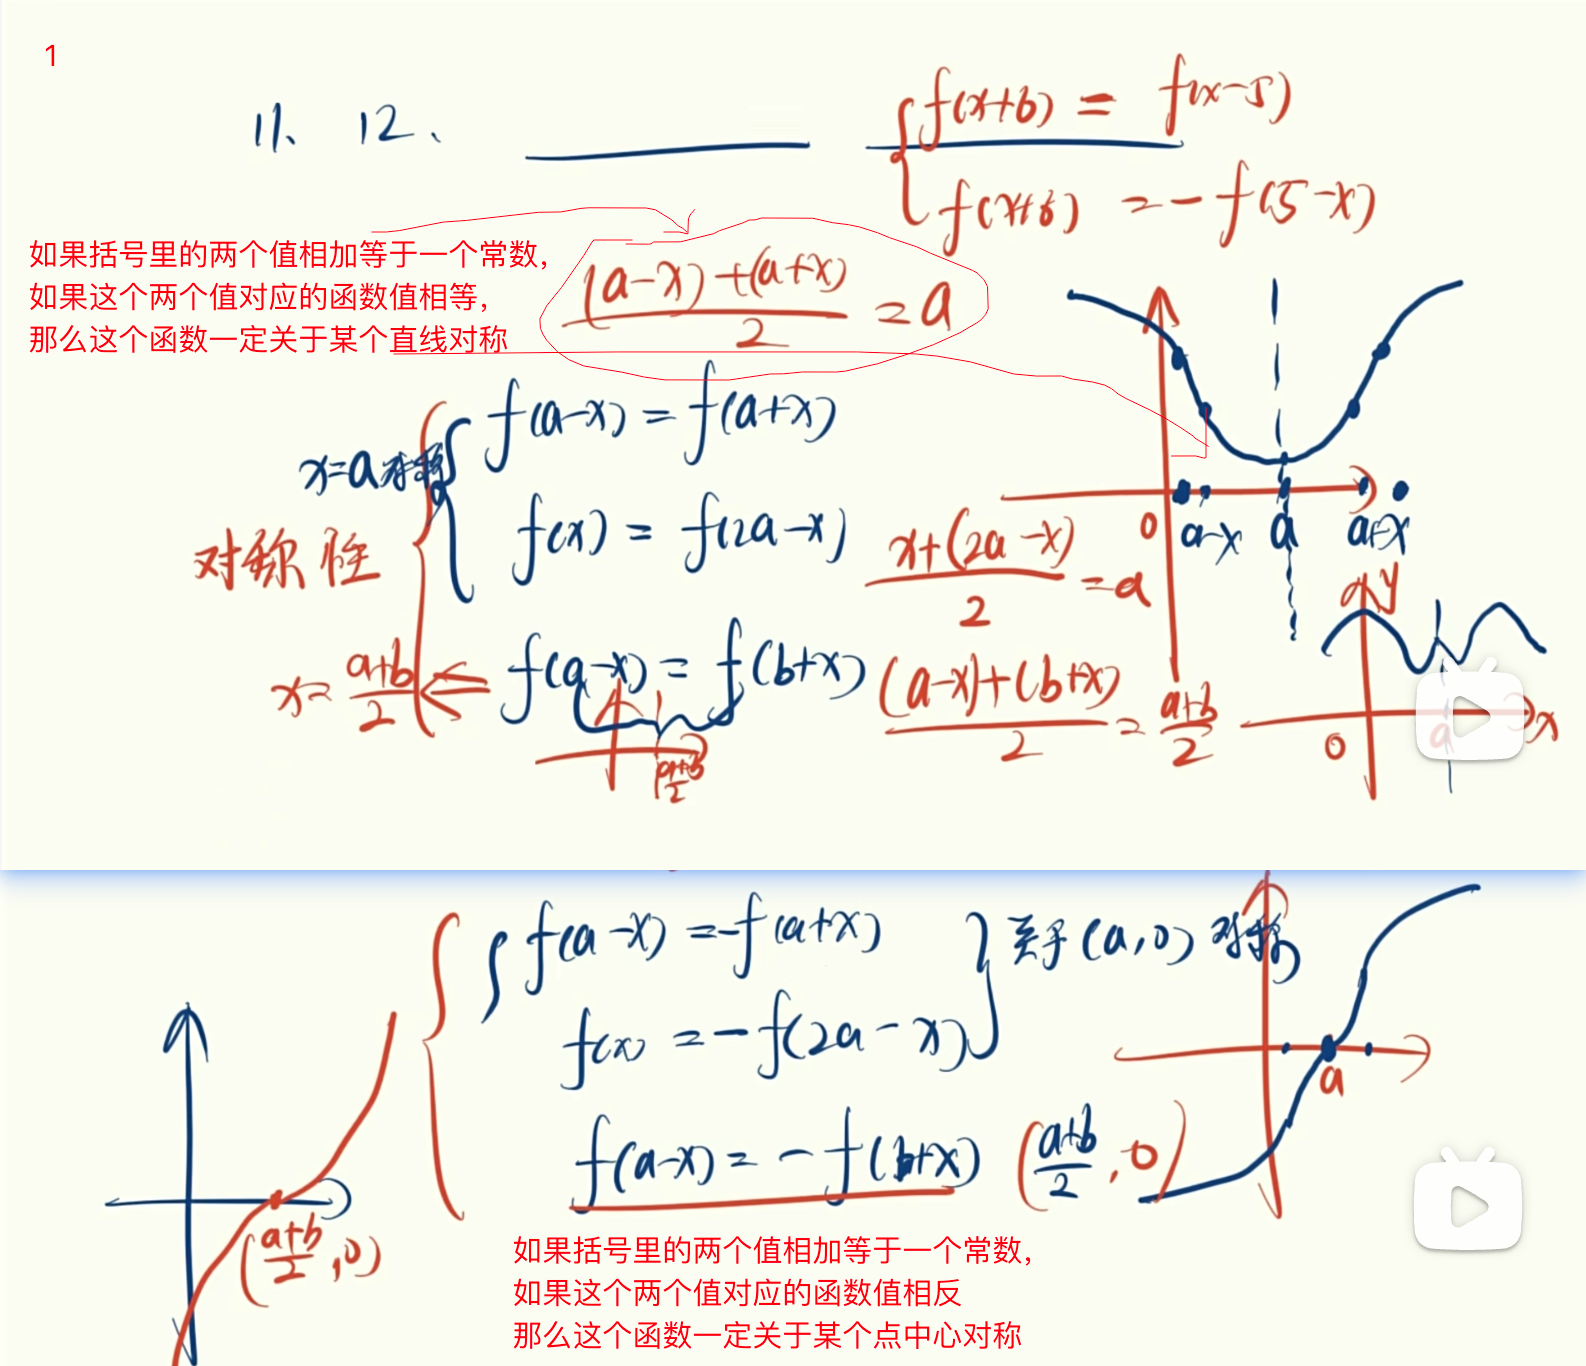 1
11、 12、
f(x+6) = f(x-5)
f(x+6) = -f(5-x)
如果括号里的两个值相加等于一个常数，
如果这个两个值对应的函数值相等，
那么这个函数一定关于某个直线对称
(a-x)+(a+x)/2 = a
x=a对称
f(a-x) = f(a+x)
f(x) = f(2a-x)
对称性
x+(2a-x)/2 = a
0 a-x a a+x
x = a+b/2 ⇐ f(a-x) = f(b+x)
(a-x)+(b+x)/2 = a+b/2
a+b/2
y
0 a x
f(a-x) = -f(a+x)
f(x) = -f(2a-x)
关于(a,0)对称
a
f(a-x) = -f(b+x) (a+b/2,0)
(a+b/2,0)
如果括号里的两个值相加等于一个常数，
如果这个两个值对应的函数值相反
那么这个函数一定关于某个点中心对称